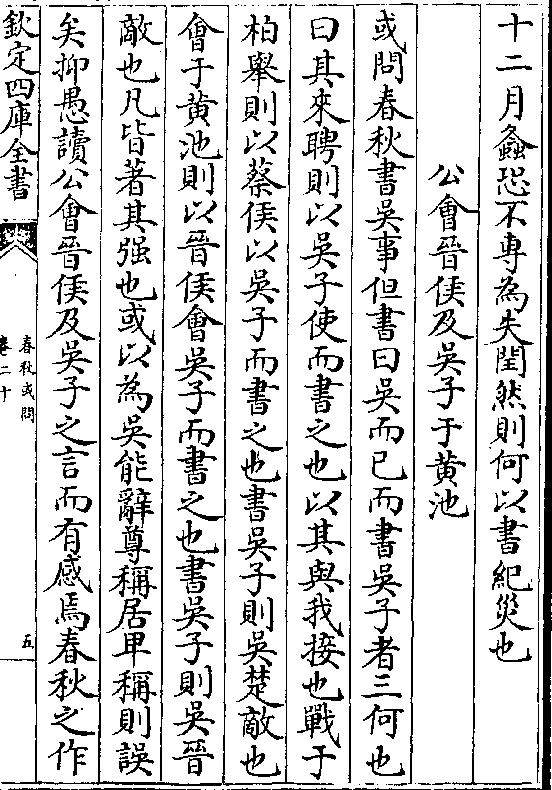 十二月螽恐不專為失閏然則何以書紀災也
公會晉侯及吳子于黄池
或問春秋書吳事但書曰吳而已而書吳子者三何也
曰其來聘則以吳子使而書之也以其與我接也戰于
柏舉則以蔡侯以吳子而書之也書吳子則吳楚敵也
會于黄池則以晉侯會吳子而書之也書吳子則吳晉
敵也凡皆著其强也或以為吳能辭尊稱居卑稱則誤
矣抑愚讀公會晉侯及吳子之言而有感焉春秋之作
欽定四庫全書
春秋或問
卷二十
五